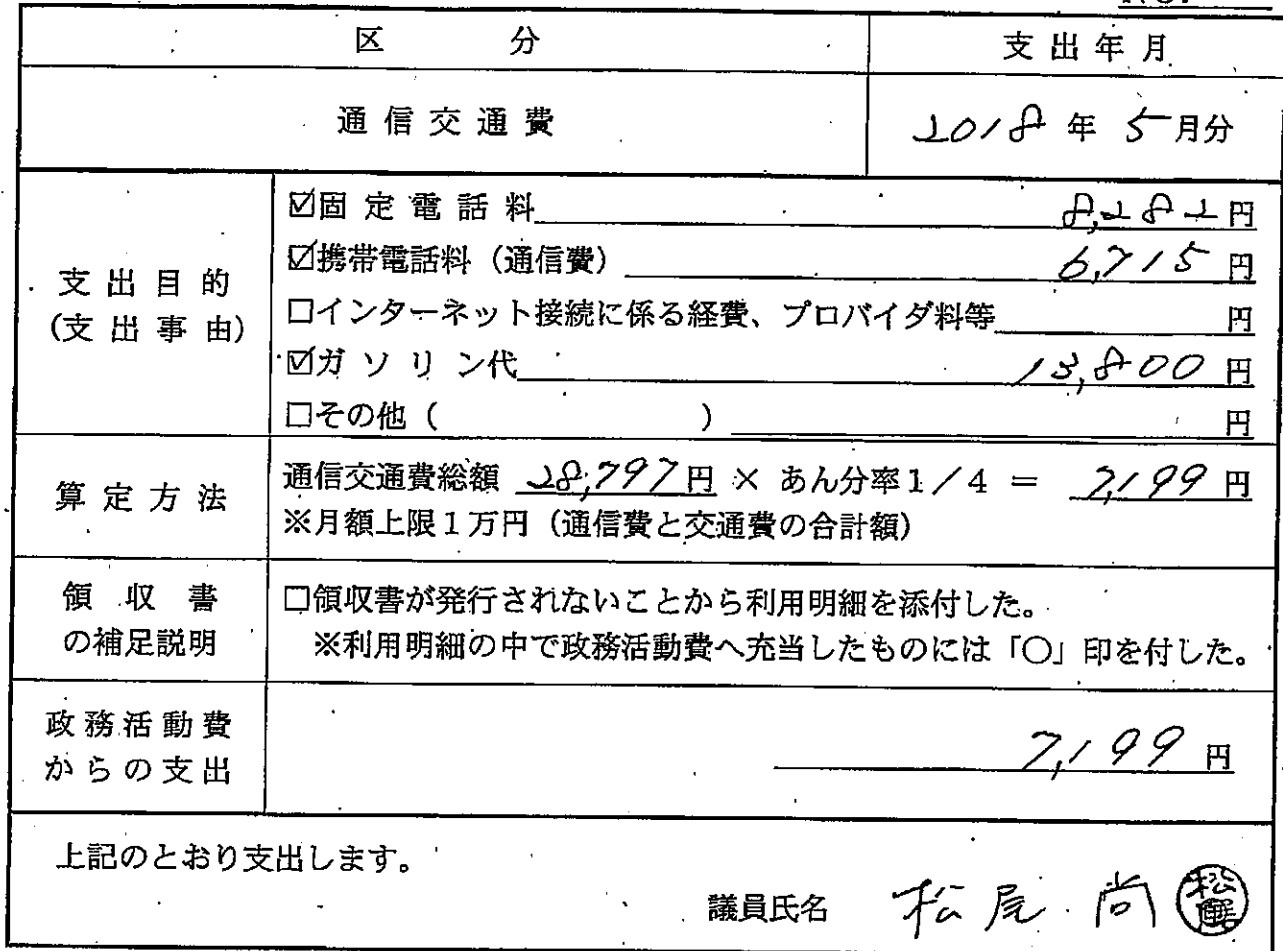 区 分
支出年月
通信交通費
2018年5月分
支出目的
(支出事由)
☑固定電話料 8,282円
☑携帯電話料（通信費） 6,715円
□インターネット接続に係る経費、プロバイダ料等 円
☑ガソリン代 13,800円
□その他（ ） 円
算定方法
通信交通費総額 28,797円 × あん分率1／4 ＝ 7,199円
※月額上限1万円（通信費と交通費の合計額）
領収書
の補足説明
□領収書が発行されないことから利用明細を添付した。
※利用明細の中で政務活動費へ充当したものには「○」印を付した。
政務活動費
からの支出
7,199円
上記のとおり支出します。
議員氏名 松尾 尚